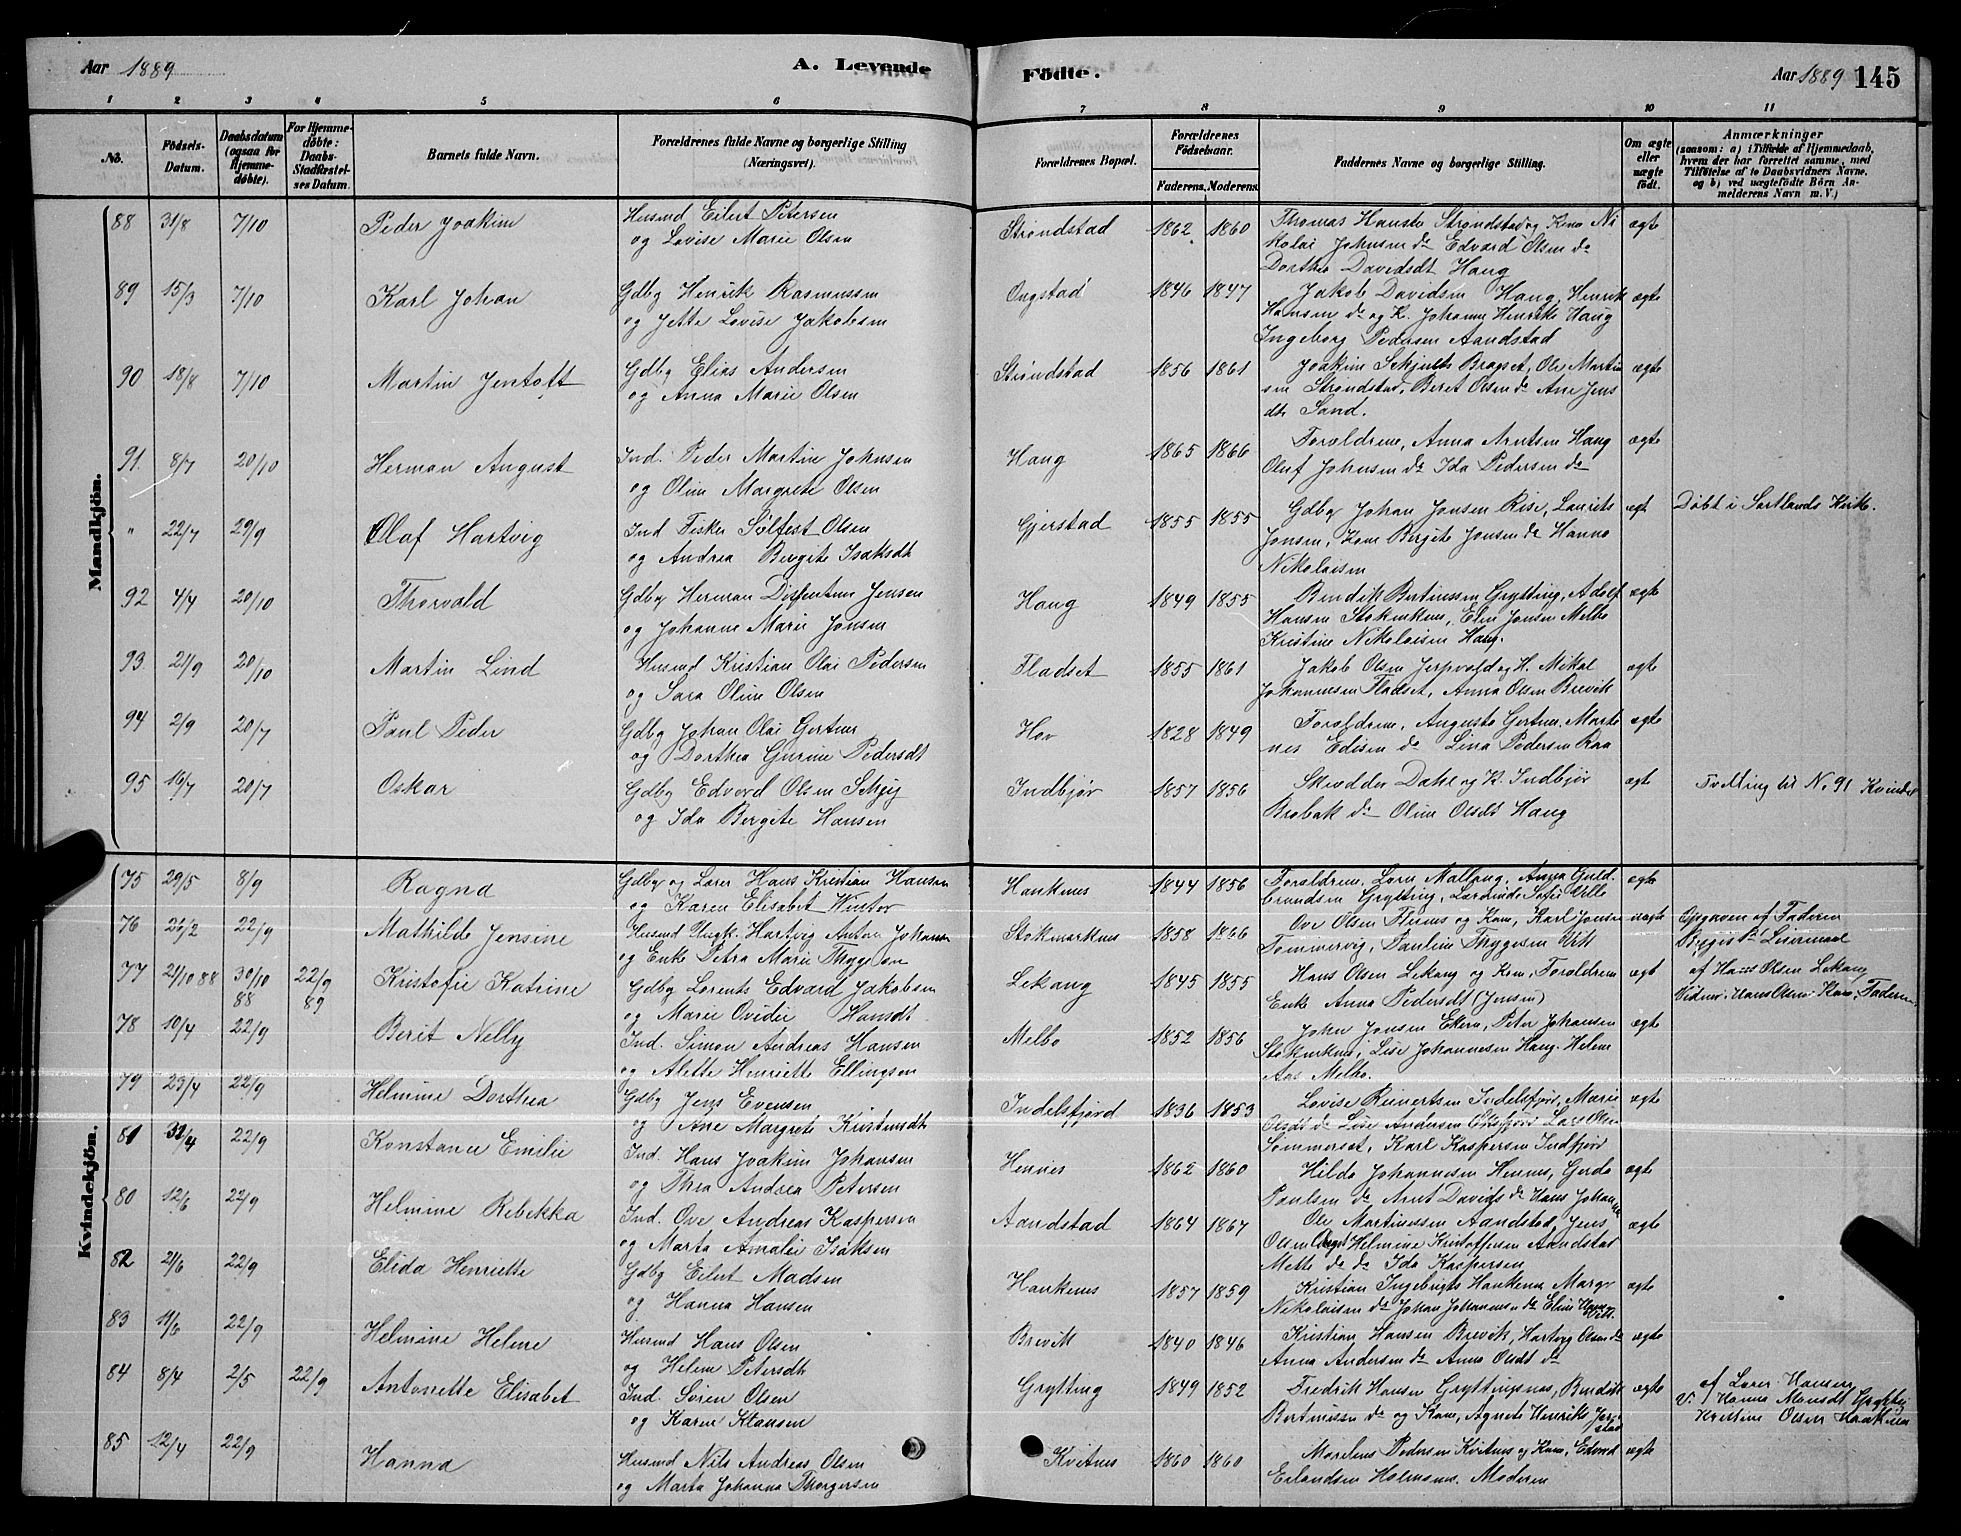 Aar 1889
A. Levende
Födte.
Aar 1889 145
1 2 3 4 5 6 7 8 9 10 11
No.
Födsels-
Datum.
Daabsdatum
(ogsaa for
Hjemme-
döbte).
For Hjemme-
döbte:
Daabs-
Stadfæstel-
ses Datum.
Barnets fulde Navn.
Forældrenes fulde Navne og borgerlige Stilling
(Næringsvei).
Forældrenes Bopæl.
Forældrenes
Födselsaar.
Faderens. Moderens.
Faddernes Navne og borgerlige Stilling.
Om ægte
eller
uægte
födt.
Anmærkninger
(saasom: a) i Tilfælde af Hjemmedaab,
hvem der har forrettet samme, med
Tilföielse af to Daabsvidners Navne,
og b) ved uægtefödte Börn An-
melderens Navn m. V.)
Mandkjön.
88 31/8 7/10 Peder Joakim
Husmd Eilert Petersen
og Lovise Marie Olsen
Strøndstad 1862 1860
Thomas Hansen Strøndstad og Kone Ni
kolai Johnsen do Edvard Olsen do
Dorthea Davidsdt Haug
ægte
89 15/3 7/10 Karl Johan
Gdbg Henrik Rasmussen
og Jette Lovise Jakobsen
Ongstad 1846 1847
Jakob Davidsen Haug, Henrik
Hansen do og K. Johanna Henriks Haug
Ingeborg Pedersen Aandstad
ægte
90 18/8 7/10 Martin Jentoft
Gdbg Elias Andersen
og Anna Marie Olsen
Strøndstad 1856 1861
Joakim Schjelts Brapset, Ole Martin
sen Strøndstad, Beret Olsen do Ane Jens
dtr Sand.
ægte
91. 8/7 20/10 Herman August
Ind. Peder Martin Johnsen
og Oline Margrete Olsen
Haug 1865 1866
Forældrene, Anna Arntsen Haug
Oluf Johnsen do Ida Pedersen do
ægte
" 22/7 29/9 Olaf Hartvig
Ind Fisker Sølfest Olsen
og Andrea Bergete Isaksdt
Gjerstad 1855 1855
Gdbg Johan Jonsen Rise, Laurits
Jonsen, Kone Bergete Jonsen do Hanna
Nikolaisen
ægt
Döbt i Sortlands Kirke.
92 4/4 20/10 Thorvald
Gdbg Herman Jensen
og Johanne Marie Jensen
Haug 1849 1855
Bendik Bertinussen Grytting, Adolf
Hansen Stokmknes, Elen Jonsen Melbo
Kristine Nikolaisen Haug.
ægte
93. 21/9 20/10 Martin Lind
Husmd Kristian Olai Pedersen
og Sara Oline Olsen
Fladset 1855 1861
Jakob Olsen Jerpvold og H. Mikal
Johannesen Fladset, Anna Olsen Brevik
ægte
94 2/9 20/7 Paul Peder
Gdbg Johan Olai Gertsen
og Dorthea Gurine Pedersdt
Hov 1828 1849
Forældrene, Augusta Gertsen, Marte
nes Edisen do Lina Pedersen Raa
ægte
95 16/7 20/7 Oskar
Gdbg Edvard Olsen Schjy
og Ida Bergete Hansen
Indbjør 1857 1856
Skrædder Dahl og K. Indbjør
Brobak do Oline Olsdt Haug
ægt
Tvilling til No 91 Kvindek
Kvindekjön.
75 29/5 8/9 Ragna
Gdbg og Lærer Hans Kristian Hansen
og Karen Elisabet Winter
Hankenes 1844 1856
Forældrene, Lærer Mallang, Anna Guld-
brandsen Grytting, Lærerinde Sofie Ulle
ægte
76 26/2 22/9 Mathilde Jensine
Husmd Ungk. Hartvig Anton Johansen
og Enke Petra Marie Thygesen
Stokmarknes 1858 1866
Ove Olsen og Kone, Karl Jonsen
Tømmervig, Pauline Thygesen Vik
uægte
Opgaven af Faderen
77 21/10 88 30/10 88 22/9 89 Kristofie Katrine
Gdbg Lorents Edvard Jakobsen
og Marie Ovidie Hansdt
Lekang 1845 1855
Hans Olsen Lekang og Kone, Forældrene
Enke Anna Pedersdt (Jensen)
ægt
af Hans Olsen Lekang
Vidner: Hans Olsen Kone. Faderen.
78 10/4 22/9 Berit Nelly
Ind. Simon Andreas Hansen
og Alette Henriette Ellingsen
Melbo 1852 1856
John Jonsen Ekern, Peter Johansen
Stokmknes, Lise Johannesen Haug. Helene
Aas Melbo.
ægte
79 23/4 22/9 Helmine Dorthea
Gdbg Jens Evensen
og Ane Margrete Kristensdt
Indelsfjord 1836 1853
Lovise Reinertsen Indelsfjord, Marie
Olsdt do Lise Andersen Lars Olsen
Sommerset, Karl Kaspersen Indfjord
ægte
81 22/4 22/9 Konstance Emilie
Ind. Hans Joakim Johansen
og Thea Andrea Petersen
Hennes 1862 1860
Hilda Johannesen Hennes, Gerda
Paulsen do Arnt Davids do Hans Johan
ægte
80 12/6 22/9 Helmine Rebekka
Ind. Ove Andreas Kaspersen
og Marta Amalie Isaksen
Aandstad 1864 1867
Ole Martinessen Aandstad, Jens
Olsen Helmine Kristoffersen Aandstad
Mette do do Ida Kaspersen
ægte
82 21/6 22/9 Elida Henriette
Gdbg Eilert Madsen
og Hanna Hansen
Hankenes 1857 1859
Kristian Ingebrigts Hankenes Margr
Nikolaisen do Johan Johannesen do Elen Hans
Vik.
ægte
83 11/6 22/9 Helmine Helene
Husmd Hans Olsen
og Helene Petersdt
Brevik 1840 1846
Kristian Hansen Brevik, Hartvig Olsen do
Anna Andersen do Anna Olsdt do
ægte
84 8/4 2/5 22/9 Antonette Elisabet
Ind. Sören Olsen
og Karen Klausen
Grytting 1849 1852
Fredrik Hansen Gryttingsnes, Bendik
Bertinussen do og Kone, Agnete Henriks Jerstad
ægte
af Lærer Hansen
V. Hanna Monsdt Grytting
Kristine Olsen Hankenes
85 12/4 22/9 Hanna
Husmd Nils Andreas Olsen
og Marta Johanna Thorgersen
Kvitnes 1860 1860
Marelius Pedersen Kvitnes og Kone, Edvard
Erlandsen Holmsnes, Moderen
ægte